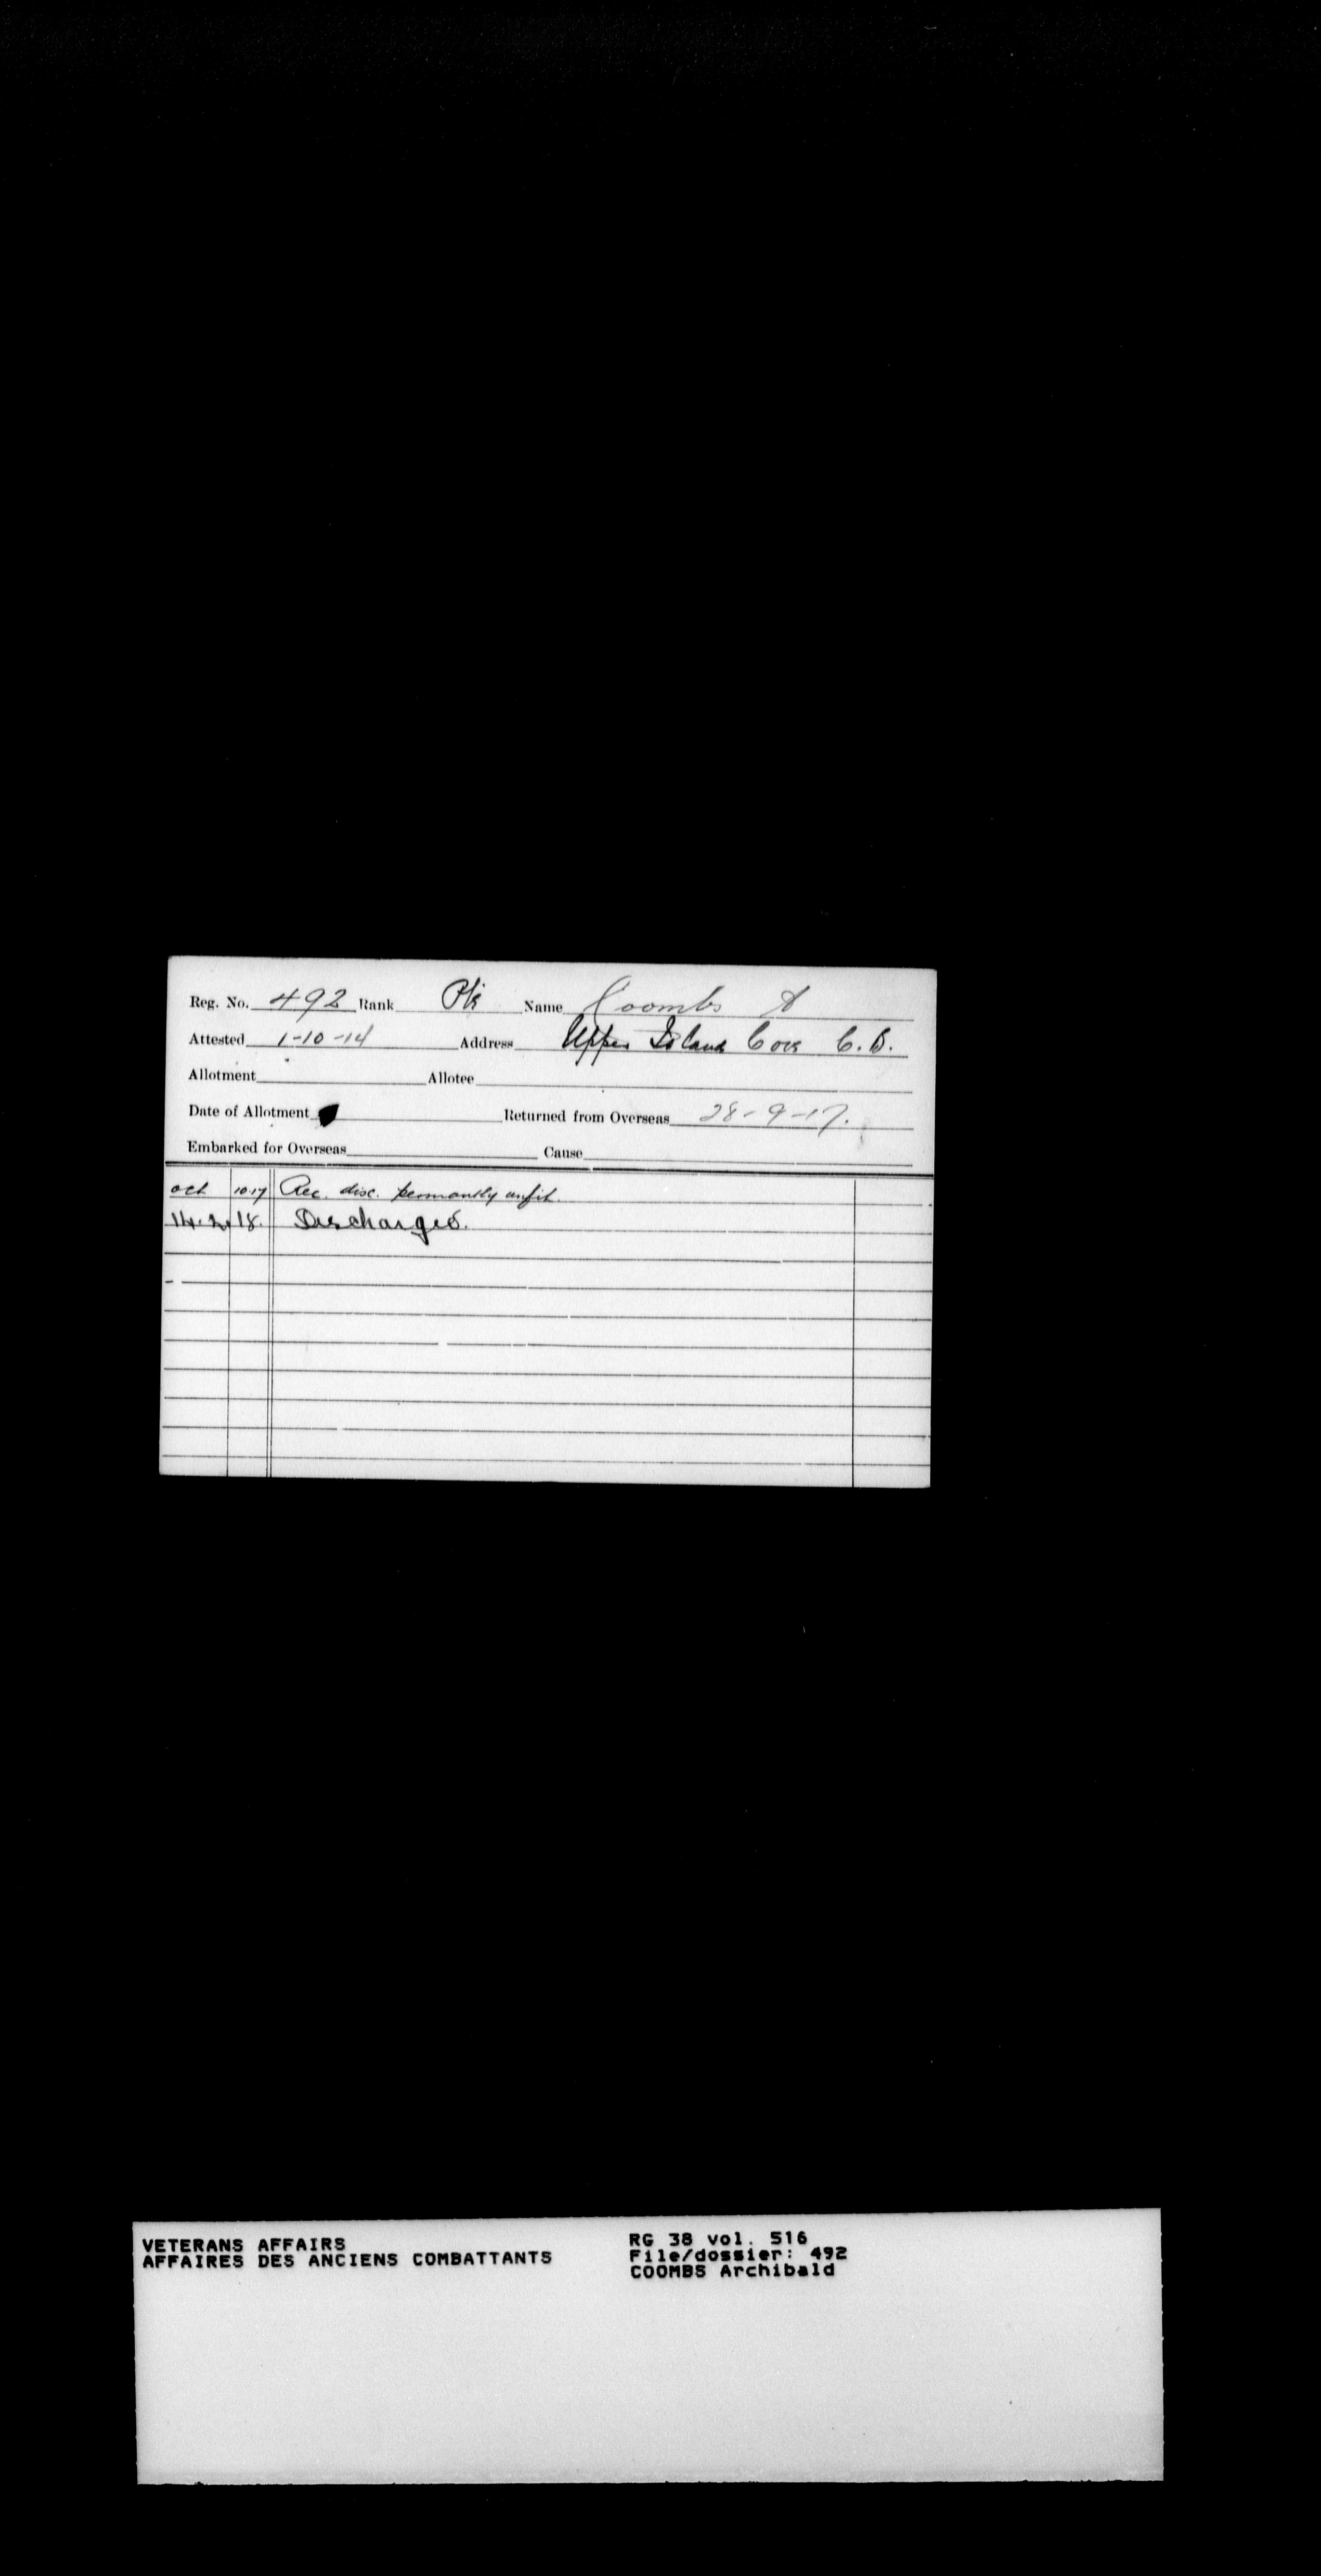 Reg. No. 492 Rank Pte Name Coombs A
Attested 1-10-14 Address Upper Island Cove C.B.
Allotment Allotee
Date of Allotment Returned from Overseas 28-9-17.
Embarked for Overseas Cause
oct 10 17 Rec. disc. permantly unfit.
14.2.18. Discharged.
VETERANS AFFAIRS RG 38 vol. 516
AFFAIRES DES ANCIENS COMBATTANTS File/dossier: 492
COOMBS Archibald